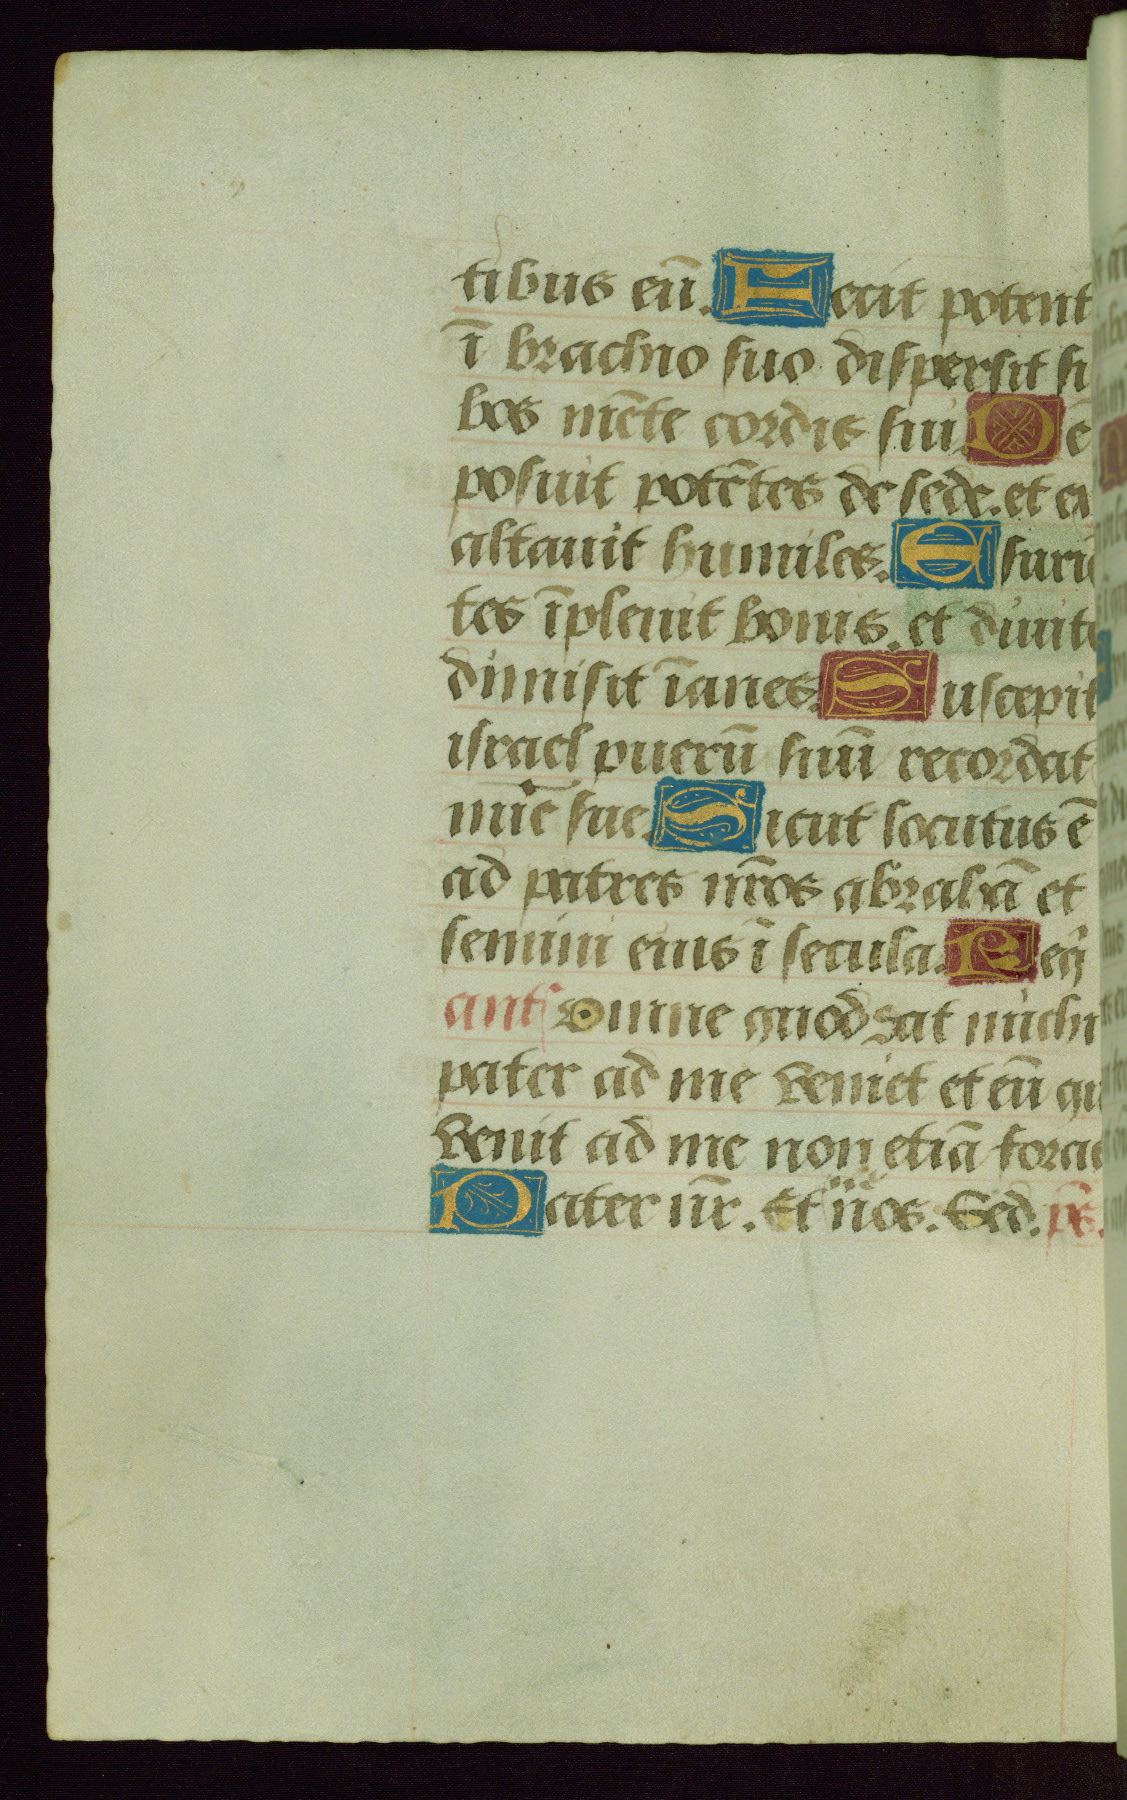 tibus eū. Fecit potent
ī brachio suo dispersit su
bos mēte cordis sui. De
posuit potētes de sede. et ex
altauit humiles. Esurie
tes īpleuit bonis. et diuite
dimisit īanes. Suscepit
israel puerū suū recordat
mīe sue. Sicut locutus ē
ad patres nr̄os abrahā et
semini eius ī secula. Req̄
ant̄ Omne quod dat michi
pater ad me veniet et eū qu
venit ad me non etiā forac
Pater nr̄. Et n̄ nos. Sed. ps̄.